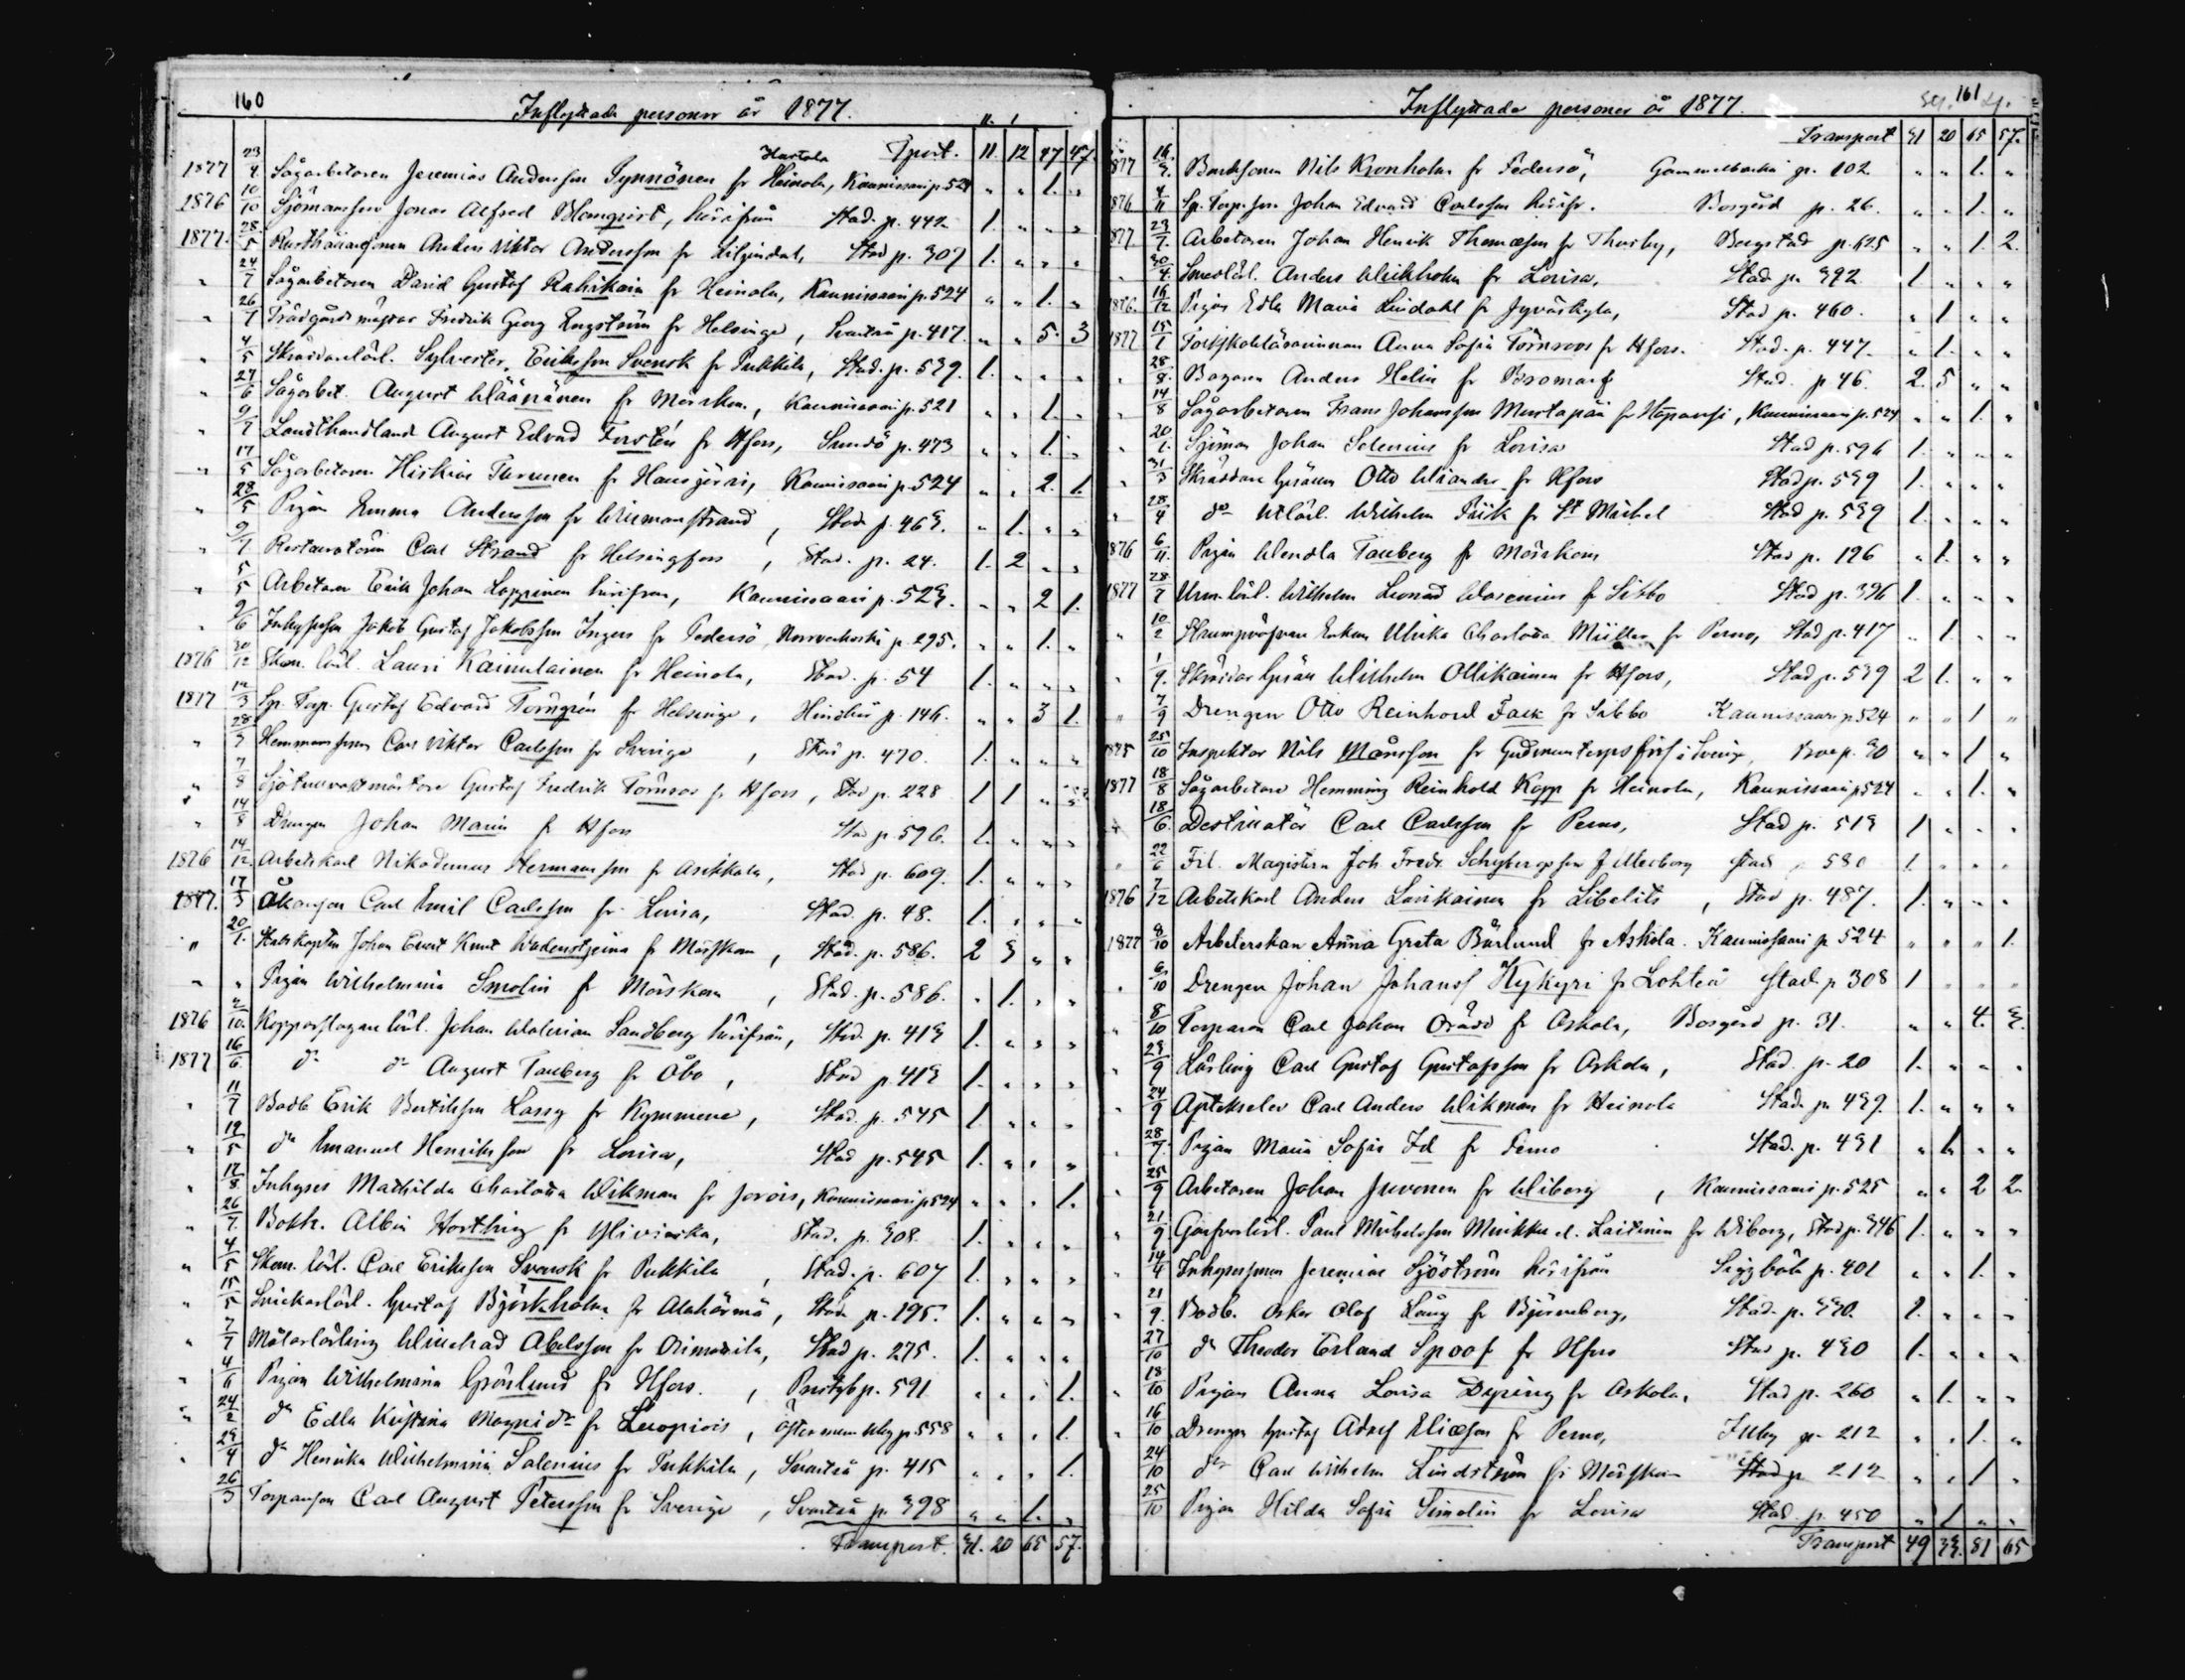 160
Inflyttade personer år 1877.
Tport. 11. 12 47 47.
Hartola
1877 23/4 Sågarbetaren Jeremias Andersson Tynnönen fr Heinola, Kaunissaari p. 524 " " 1. "
1876 10/10 Sjömansson Jonas Alfred Blomqvist, härifrån Stad. p. 442 1. " " "
1877. 28/5 Rusthållaresonen Anders Viktor Andersson fr Liljendal, Stad p. 307 1. " " "
" 24/7 Sågarbetaren David Gustaf Rahikain fr Heinola, Kaunissaari p. 524 " " 1. "
" 26/7 Trädgårdsmästar Fredrik Georg Engström fr Helsinge, Svartså p. 417. " " 5. 3
" 4/5 Skräddarlärl. Sylvester Eriksson Svensk fr Pukkila, Stad. p. 539. 1. " " "
" 27/6 Sågarbet. August Wäänänen fr Mörskom, Kaunissaari p. 521 " " 1. "
" 9/7 Landthandland August Edvard Forstén fr Hfors, Sundö p. 473 " " 1. "
" 17/5 Sågarbetaren Hiskias Turunen fr Hausjärvi, Kaunissaari p. 524 " " 2. 1.
" 28/5 Pigan Emma Andersson fr Wilmanstrand, Stad p. 463. " 1. " "
" 9/7 Restauratören Carl Strand fr Helsingfors, Stad. p. 24. 1. 2 " "
" 5/5 Arbetaren Erik Johan Loppinen härifrån, Kaunissaari p. 523. " " 2 1.
" 9/6 Inhyseson Jakob Gustaf Jakobsson Ingers fr Pedersö, Norrveckoski p. 295. " " 1. "
1876 30/12 Skom. lärl. Lauri Kainulainen fr Heinola, Stad. p. 54 1. " " "
1877 12/3 Sp. Torp. Gustaf Edvard Törngrén fr Helsinge, Hindhår p. 146. " " 3 1.
" 28/3 Hemmansson Carl Viktor Carlsson fr Sverige, Stad p. 470. 1. " " "
" 7/8 Sjötullvaktmästare Gustaf Fredrik Törnroos fr Hfors, Stad p. 228 1 1 " "
" 14/8 Drengen Johan Marin fr Hfors Stad p. 596. 1. " " "
1876 14/12. Arbetskarl Nikodemus Hermansson fr Asikkala, Stad p. 609. 1. " " "
1877. 17/3 Åkarson Carl Emil Carlsson fr Lovisa, Stad. p. 48. 1. " " "
" 20/1. Stabskapten Johan Evert Knut Wadenstjerna fr Mörskom, Stad. p. 586. 2 3 " "
" " Pigan Wilhelmina Smolin fr Mörskom, Stad. p. 586. " 1. " "
1876 2/10. Kopparslagare lärl. Johan Walerian Sandberg härifrån, Stad. p. 413 1. " " "
1877 16/6. do do August Tauberg fr Åbo, Stad p. 413 1. " " "
" 11/7 Bodb Erik Bertilsson Lassy fr Kymmene, Stad. p. 545 1. " " "
" 12/5 do Emanuel Henriksson fr Lovisa, Stad p. 545 1. " " "
" 12/8 Inhyses Mathilda Charlotta Wikman fr Jorois, Kaunissaari p 524 " " " 1.
" 26/7. Bokh. Albin Horthing fr Ylivieska, Stad. p. 308 1. " " "
" 4/5 Skom. lärl. Carl Eriksson Svensk fr Pukkila, Stad. p. 607 1. " " "
" 15/5 Snickarlärl. Gustaf Björkholm fr Alahärmä, Stad. p. 195. 1. " " "
" 7/7 Målarlärling Winehad Abelsson fr Orimattila, Stad p. 275. 1. " " "
" 4/6 Pigan Wilhelmina Grönlund fr Hfors., Prestgb p. 591 " " " 1.
" 24/2 do Edla Kristina Magni dr fr Kuopiois, Östermum Wbg p 558 " " " 1.
" 29/4 do Henrika Wilhelmina Salenius fr Pukkila, Svartså p. 415 " " " 1.
26/3 Torparson Carl August Petersson fr Sverige, Svartså p. 398 " " 1. "
Transport. 31. 20 65 57.
161
Inflyttade personer år 1877.
Transport 31 20 65 57.
1877 16/3. Bondsonen Nils Kronholm fr Pedersö, Gammelbacka p. 102 " " 1. "
1876 4/11 Sp. Torp. son Johan Edvard Carlsson härifr. Bosgård p. 26. " " 1. "
1877 23/7. Arbetaren Johan Henrik Thomasson fr Thusby, Bergstad p. 625 " " 1. 2.
" 30/4. Smedslärl. Anders Wickholm fr Lovisa, Stad p. 392 1 " " "
1876. 16/12 Pigan Edla Maria Lindahl fr Jyväskylä, Stad p. 460. " 1 " "
1877 15/1 Folkskollärarinnan Anna Sofia Törnroos fr Hfors. Stad. p. 447. " 1. " "
" 28/8. Bagaren Anders Helin fr Bromarf Stad. p 46. 2. 5 " "
" 14/8 Sågarbetaren Frans Johansson Mustapää fr Hapaursi, Kaunissaari p. 524 " " 1. "
" 20/1. Sjöman Johan Selenius fr Lovisa Stad p. 596 1. " " "
" 31/3 Skräddare Gesällen Otto Wiander fr Hfors Stad p. 539 1. " " "
" 28/4 do Utlärl. Wilhelm Piik fr St Michel Stad p. 539 1. " " "
1876 6/11. Pigan Wendla Tauberg fr Mörskom Stad p. 196 " 1. " "
1877 28/7 Urm. lärl. Wilhelm Leonard Wasenius fr Sibbo Stad p. 396 1. " " "
" 10/2 Strumpväfvare Enkan Ulrika Charlotta Müller fr Perno, Stad p. 417 " 1. " "
" 1/9. Skräddar Gesäll Wilhelm Ollikainen fr Hfors, Stad p. 539 2 1. " "
" 7/9 Drengen Otto Reinhord Falk fr Sibbo Kaunissaari p 524 " " 1 "
1875 25/10 Inspektor Nils Månsson fr Gudmuntorps förs i Sverige, Boe p. 30 " " 1 "
1877 18/8 Sågarbetare Hemming Reinhold Kopp fr Heinola, Kaunissaari p 524 " " 1. "
" 18/6. Destilatör Carl Carlsson fr Perno, Stad p. 513 1 " " "
" 22/6 Fil. Magistern Joh. Fredr. Schybergsson f Uleåborg stad p 580 1. " " "
1876 7/12 Arbetskarl Anders Laukainen fr Libelits, Stad p. 487. 1. " " "
1877 8/10 Arbeterskan Anna Greta Bärlund fr Askola. Kaunissaari p 524 " " " 1.
" 6/10 Drengen Johan Johans Kykyri fr Lohteå stad. p 308 1 " " "
" 8/10 Torparen Carl Johan Orädd fr Askola, Bosgård p. 31. " " 4. 3.
" 23/9 Lärling Carl Gustaf Gustafsson fr Askola, Stad. p. 20 1. " " "
" 24/9 Apthekselev Carl Anders Wikman fr Heinola Stad p. 439. 1. " " "
" 28/9. Pigan Maria Sofia Id fr Perno Stad. p. 431 " 1. " "
" 25/9 Arbetaren Johan Juvonen fr Wiborg, Kaunissaari p. 525 " " 2 2.
" 21/9 Garfvarlärl. Paul Michelsson Muikku el. Laitinen fr Wiborg, Stad p. 346 1. " " "
" 14/4 Inhysesson Jeremias Sjöström härifrån Siggböle p. 401 " " 1. "
" 21/9. Bodb. Oskar Olof Lång fr Björneborg, Stad. p. 330. 1. " " "
" 27/10 do Theodor Erland Spoof fr Hfors Stad p. 430 1. " " "
18/10 Pigan Anna Lovisa Dyring fr Askola, Stad p. 260 " 1. " "
" 16/10 Drengen Gustaf Adolf Eliasson fr Perno, Illby p. 212 " " 1. "
24/10 do Carl Wilhelm Lindström fr Mörskom Stad p 212 " " 1 "
25/10 Pigan Hilda Sofia Simolin fr Lovisa Stad. p. 450 " 1 " "
Transport 49 33. 81 65